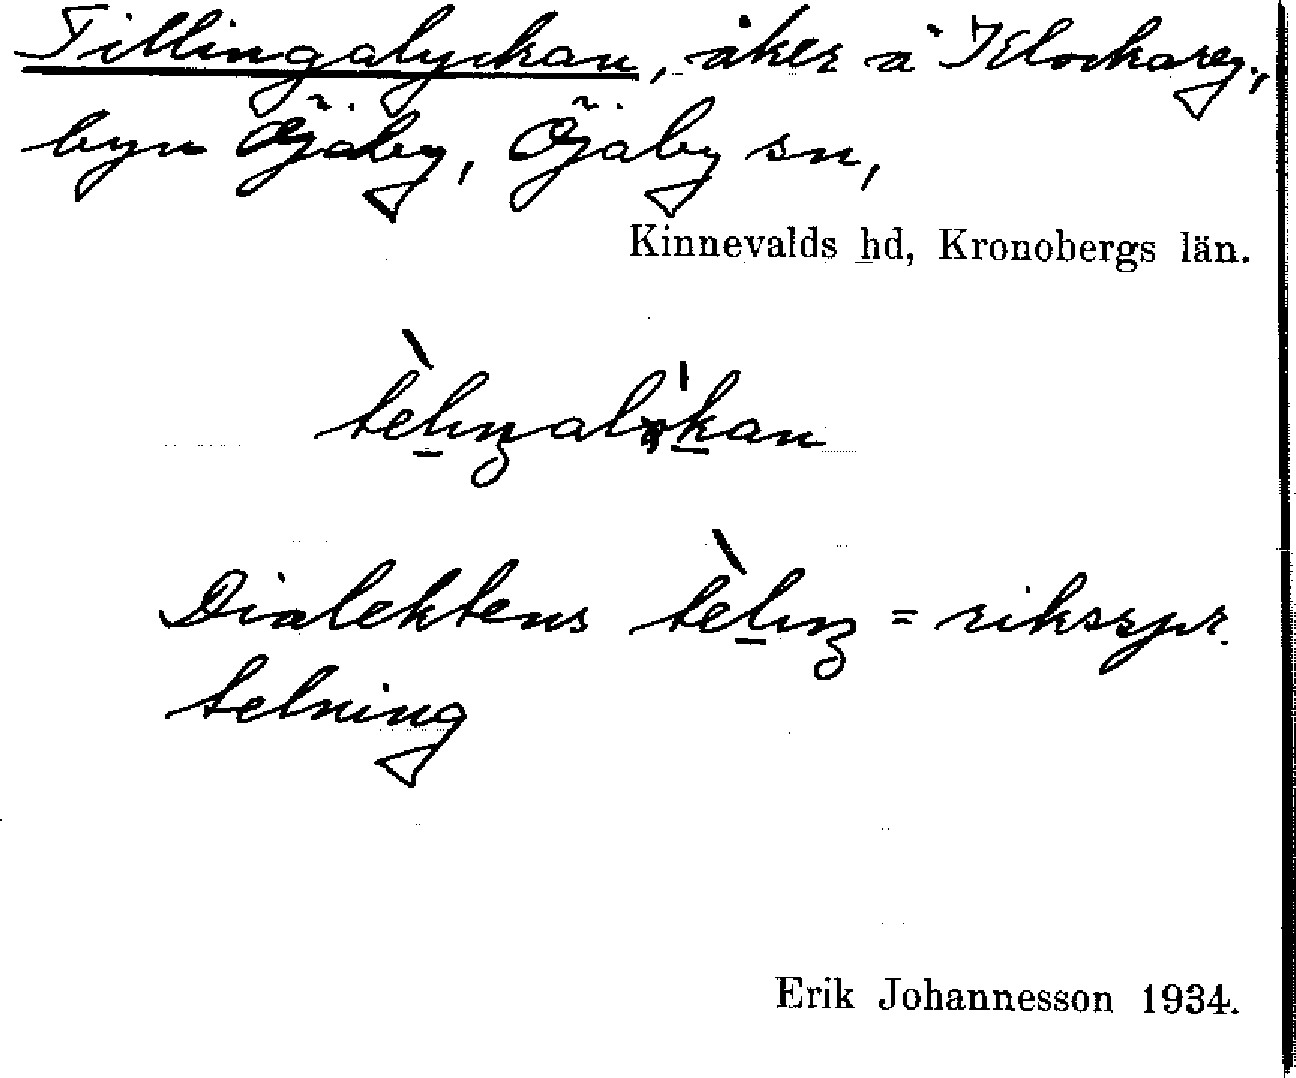 Tillingalyckan, åker å Klockareg.,
byn Öjaby, Öjaby sn,
Kinnevalds hd, Kronobergs län.
Dialektens tèlıŋ = riksspr.
telning
Erik Johannesson 1934.